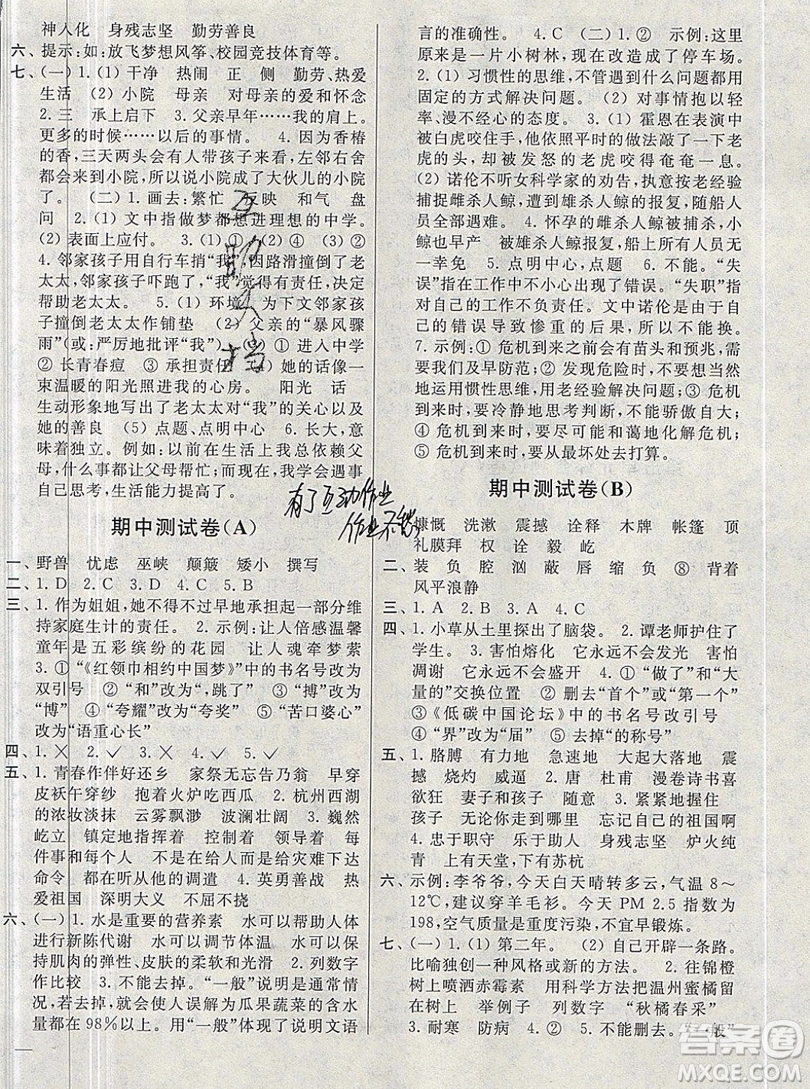 神人化 身残志坚 勤劳善良
六、提示:如:放飞梦想风筝、校园竞技体育等。
七、(一)1.(1)干净 热闹 正 侧 勤劳、热爱
生活 (2)小院 母亲 对母亲的爱和怀念
2.三 承上启下 3.父亲早年……我的肩上。
更多的时候……以后的事情。 4.因为香椿
的香,三天两头会有人带孩子来看,左邻右舍
都会来小院,所以说成了大伙儿的小院
了。 (二)1.画去:繁忙 反映 和气 盘
问 2.(1)文中指做梦都想进理想的中学。
(2)表面上应付。 3.(1)② ④ (2)① ③
4.邻家孩子用自行车捎“我”,因路滑撞倒了老
太太,邻家孩子吓跑了,“我”觉得害怕,决定
帮助老太太。 5.(1)环境 为下文邻家孩
子撞倒老太太作铺垫 (2)父亲的“暴风骤
雨”(或:严厉地批评“我”) ① 进入中学
② 长青春痘 ③ 承担责任 ④ 她的话像一
束温暖的阳光照进我的心房。 阳光 话
生动形象地写出了老太太对“我”的关心以及
她的善良 (5)点题,点明中心 6.长大,意
味着独立。例如:以前在生活上我总依赖父
母,什么事都让父母帮忙;而现在,我学会遇事
自己思考,生活能力提高了。
期中测试卷(A)
一、野兽 忧虑 巫峡 颠簸 矮小 撰写
二、1.D 2.C 3.D 4.C 5.B
三、1.作为姐姐,她不得不过早地承担起一部分维
持家庭生计的责任。 2.示例:让人倍感温馨
童年是五彩缤纷的花园 让人魂牵梦萦
3.①“《红领巾相约中国梦》”中的书名号改为
双引号 ②“和”改为“,跳了” ③“搏”改为
“博” ④“夸耀”改为“夸奖” ⑤“苦口婆心”
改为“语重心长”
四、1.× 2.✓ 3.× 4.✓ 5.✓
五、1.青春作伴好还乡 家祭无忘告乃翁 早穿
皮袄午穿纱 抱着火炉吃西瓜 2.杭州西湖
的浓妆淡抹 云雾飘渺 波澜壮阔 3.巍然
屹立 镇定地指挥着 控制着 领导着 每
件事和一个不能给人以安慰 在灾难下达
命令 却让人听从他的调遣 4.英勇善战 热
爱祖国 深明大义 不屈不挠
六、(一)1.水是重要的营养素 水可以帮助人体
进行新陈代谢 水可以调节体温 水可以保持
肌肉的弹性、皮肤的柔软和光滑 2.列数字
作比较 3.不能去掉。“一般”说的是通常情
况,若去掉,就会使人误解为瓜果蔬菜的含水
量都在98%以上。用“一般”体现了说明文语
言的准确性。 4.C (二)1.示例:这里
原来是一片小树林,如今成了停车场。
2.(1)习惯性的思维,不管遇到什么问题都用
固定的方式解决问题。 (2)对事情抱以轻
率、漫不经心的态度。 3.(1)霍恩在表演中
被白虎咬住手,他依照平时的做法敲了一下老
虎的头,却被发怒的老虎咬得奄奄一息。
(2)诺伦不听女科学家的劝告,执意按老经验
捕捉雌杀人鲸,遭到雄杀人鲸的报复,随船人
员全部遇难。 4.怀孕的雌杀人鲸被捕后,幼
鲸也早产 被雄杀人鲸报复,船上所有人员无
一幸免 5.点明中心,点题 6.不能。“失
误”指工作中不小心出现了错误。“失职”指对
自己的工作不负责任。文中诺伦是由于自
己的错误导致惨重的后果,所以不能换。
7.示例:① 危机到来之前会有苗头和预兆,需
要我们及早防范;② 发现危险时,不能想当然
地用惯性思维、用老经验解决问题;③ 危机到
来时,要冷静地思考判断,不能骄傲自大;
④ 危机到来时,要果断和蔼地化解危机;
⑤ 危机到来时,要从最坏处去打算。
期中测试卷(B)
一、慷慨 洗漱 震撼 诠释 木牌 帐篷 顶
礼膜拜 权 诠 毅 屹
二、装 负 腔 汹 蔽 唇 缩 负 ⑧ 背着
风平浪静
三、1.C 2.C 3.A 4.C
四、1.小草从土里探出了脑袋。 2.谭老师护住了
学生。 3.害怕熔化 它永远不会发光 害怕
凋谢 它永远不会盛开 4.①“做了”和“大
量的”交换位置 ② 删去“首个”或“第一个”
③《低碳中国论坛》的书名号改双引号
④“界”改为“届” ⑤ 删去“的称号”
五、1.胳膊 有力地 急速地 大起大落地 震
撼 烧灼 威逼 2.唐 杜甫 漫卷诗书喜
欲狂 妻子和孩子 随意 3.紧紧地握住
孩子 无论你走到哪里 忘记自己的祖国啊
4.忠于职守 乐于助人 身残志坚 炉火纯
青 上有天堂,下有苏杭
六、示例:李爷爷,今天白天晴转多云,气温8~
12℃,建议穿羊毛衫。今天PM2.5指数为
198,空气质量是重度污染,不宜早锻炼。
七、(一)1.(1)第二年。 (2)自己开辟一条路。
比喻独创一种风格或新的方法。 2.往锦橙
树上喷洒赤霉素 用科学方法给温州蜜橘留
在树上越冬 举例子 列数字 “秋橘春采”
3.耐寒 防病 4.② 5.不能删去。“一般”
互助文档
有了互动作业
作业不愁
答案圈
MXQE.COM